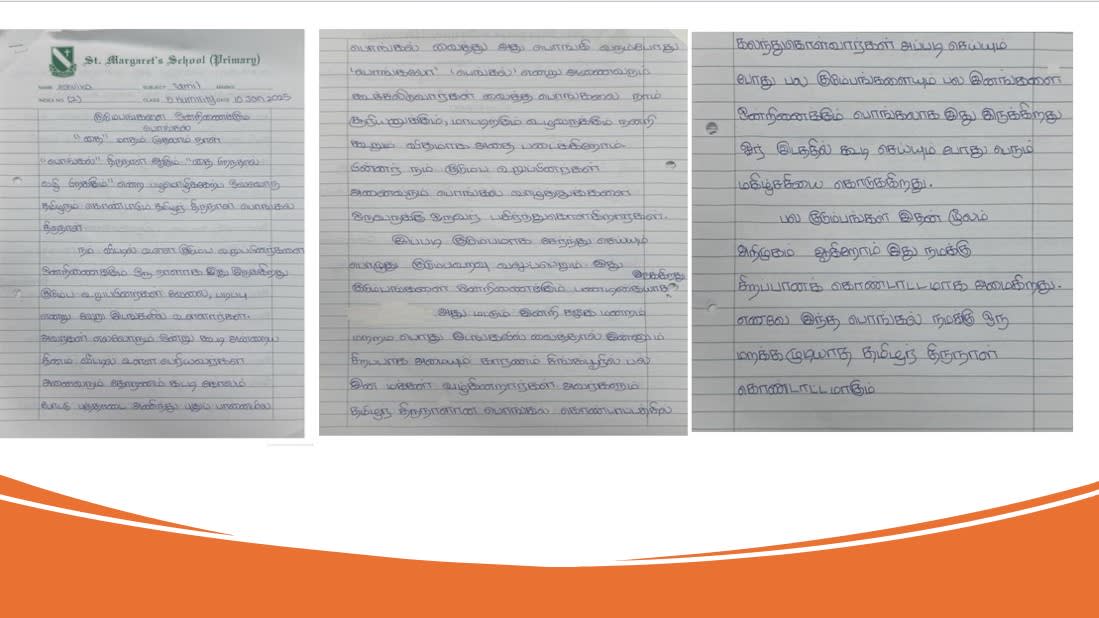 St. Margaret's School (Primary)
NAME SUBJECT Tamil
INDEX NO (2) CLASS Humility DATE 10 Jan 2025
குடும்பங்களை ஒன்றிணைக்கும்
பொங்கல்
"தை" மாதம் முதலாம் நாள்
"பொங்கல்" திருநாள் ஆகும் "தை பிறந்தால்
வழி பிறக்கும்" என்ற பழமொழிக்கேற்ப
தமிழரும் கொண்டாடும் தமிழர் திருநாள் பொங்கல்
திருநாள்
நம் வீட்டில் உள்ள குடும்ப உறுப்பினர்களை
ஒன்றிணைக்கும் ஒரு நாளாக இது இருக்கிறது
குடும்ப உறுப்பினர்கள் வேலை, படிப்பு
என்று வேறு இடங்களில் உள்ளார்கள்.
அவர்கள் எல்லோரும் ஒன்று கூடி அன்றைய
தினம் வீட்டில் உள்ள பெரியவர்கள்
அனைவரும் தோரணம் கட்டி கோலம்
போட்டு புத்தாடை அணிந்து புதுப் பானையில்
பொங்கல் வைத்து அது பொங்கி வரும்போது
'பொங்கலோ' 'பொங்கல்' என்று அனைவரும்
கூச்சலிடுவார்கள் வைத்த பொங்கலை நாம்
சூரியனுக்கும், மாட்டிற்கும் உழவருக்கும் நன்றி
கூறும் விதமாக அதை படைக்கிறோம்
பின்னர் நம் குடும்ப உறுப்பினர்கள்
அனைவரும் பொங்கல் வாழ்த்துக்களை
ஒருவருக்கு ஒருவர் பகிர்ந்துகொள்கிறார்கள்.
இப்படி குடும்பமாக சேர்ந்து செய்யும்
பொழுது குடும்பஉறவு வலுப்பெறும். இது
குடும்பங்களை ஒன்றிணைக்கும் பண்டிகையாக இருக்கிறது
அது மட்டும் இன்றி சமூக மன்றம்
மற்றும் பொது இடங்களில் வைத்தால் இன்னும்
சிறப்பாக அமையும் காரணம் சிங்கப்பூரில் பல
இன மக்கள் வாழ்கின்றார்கள் அவர்களும்
தமிழர் திருநாளான பொங்கல் கொண்டாட்டத்தில்
கலந்துகொள்வார்கள் அப்படி செய்யும்
போது பல குடும்பங்களையும் பல இனங்களை
ஒன்றிணைக்கும் பொங்கலாக இது இருக்கிறது
ஓர் இடத்தில் கூடி செய்யும் போது பெரும்
மகிழ்ச்சியை கொடுக்கிறது.
பல குடும்பங்கள் இதன் மூலம்
அறிமுகம் ஆகிறோம் இது நமக்கு
சிறப்பானக் கொண்டாட்டமாக அமைகிறது.
எனவே இந்த பொங்கல் நமக்கு ஒரு
மறக்கமுடியாத தமிழர் திருநாள்
கொண்டாட்டமாகும்